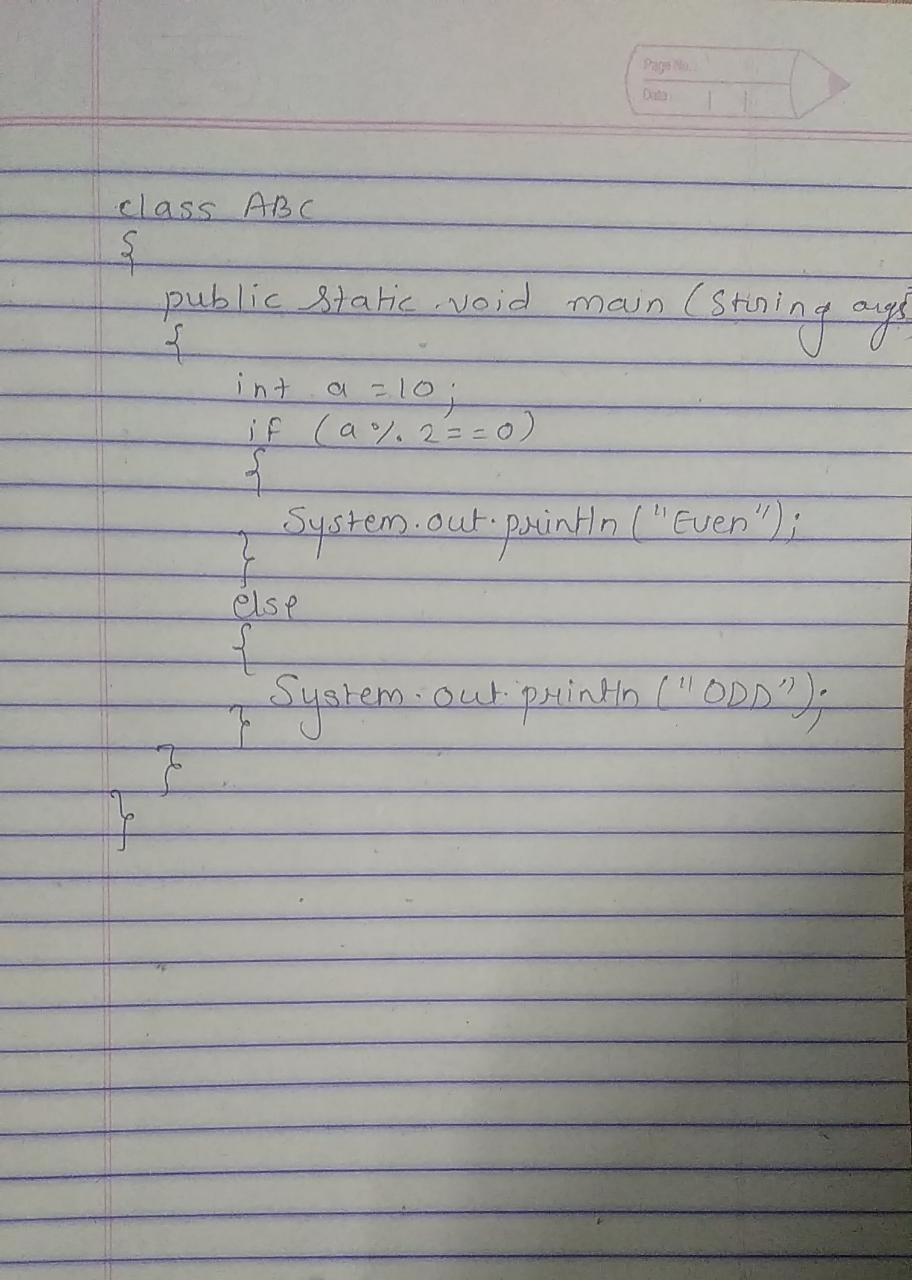 Page No.
Date
class ABC
{
public static void main (String args
{
int a = 10;
if (a % 2 == 0)
{
System.out.println ("Even");
}
else
{
System.out.println ("ODD");
}
}
}